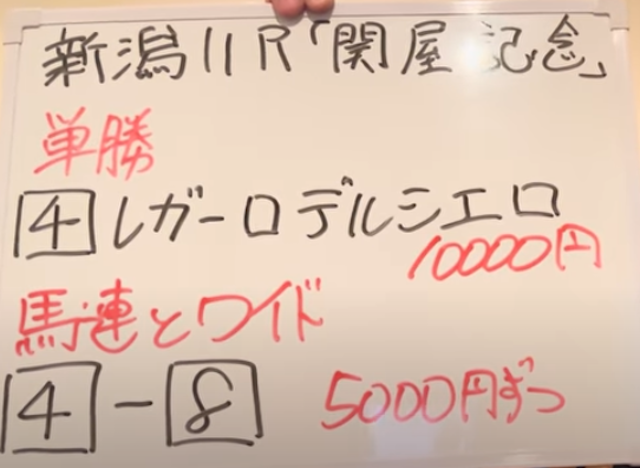 新潟11R「関屋記念」
単勝
4 レガーロデルシエロ
10000円
馬連とワイド
4-8 5000円ずつ